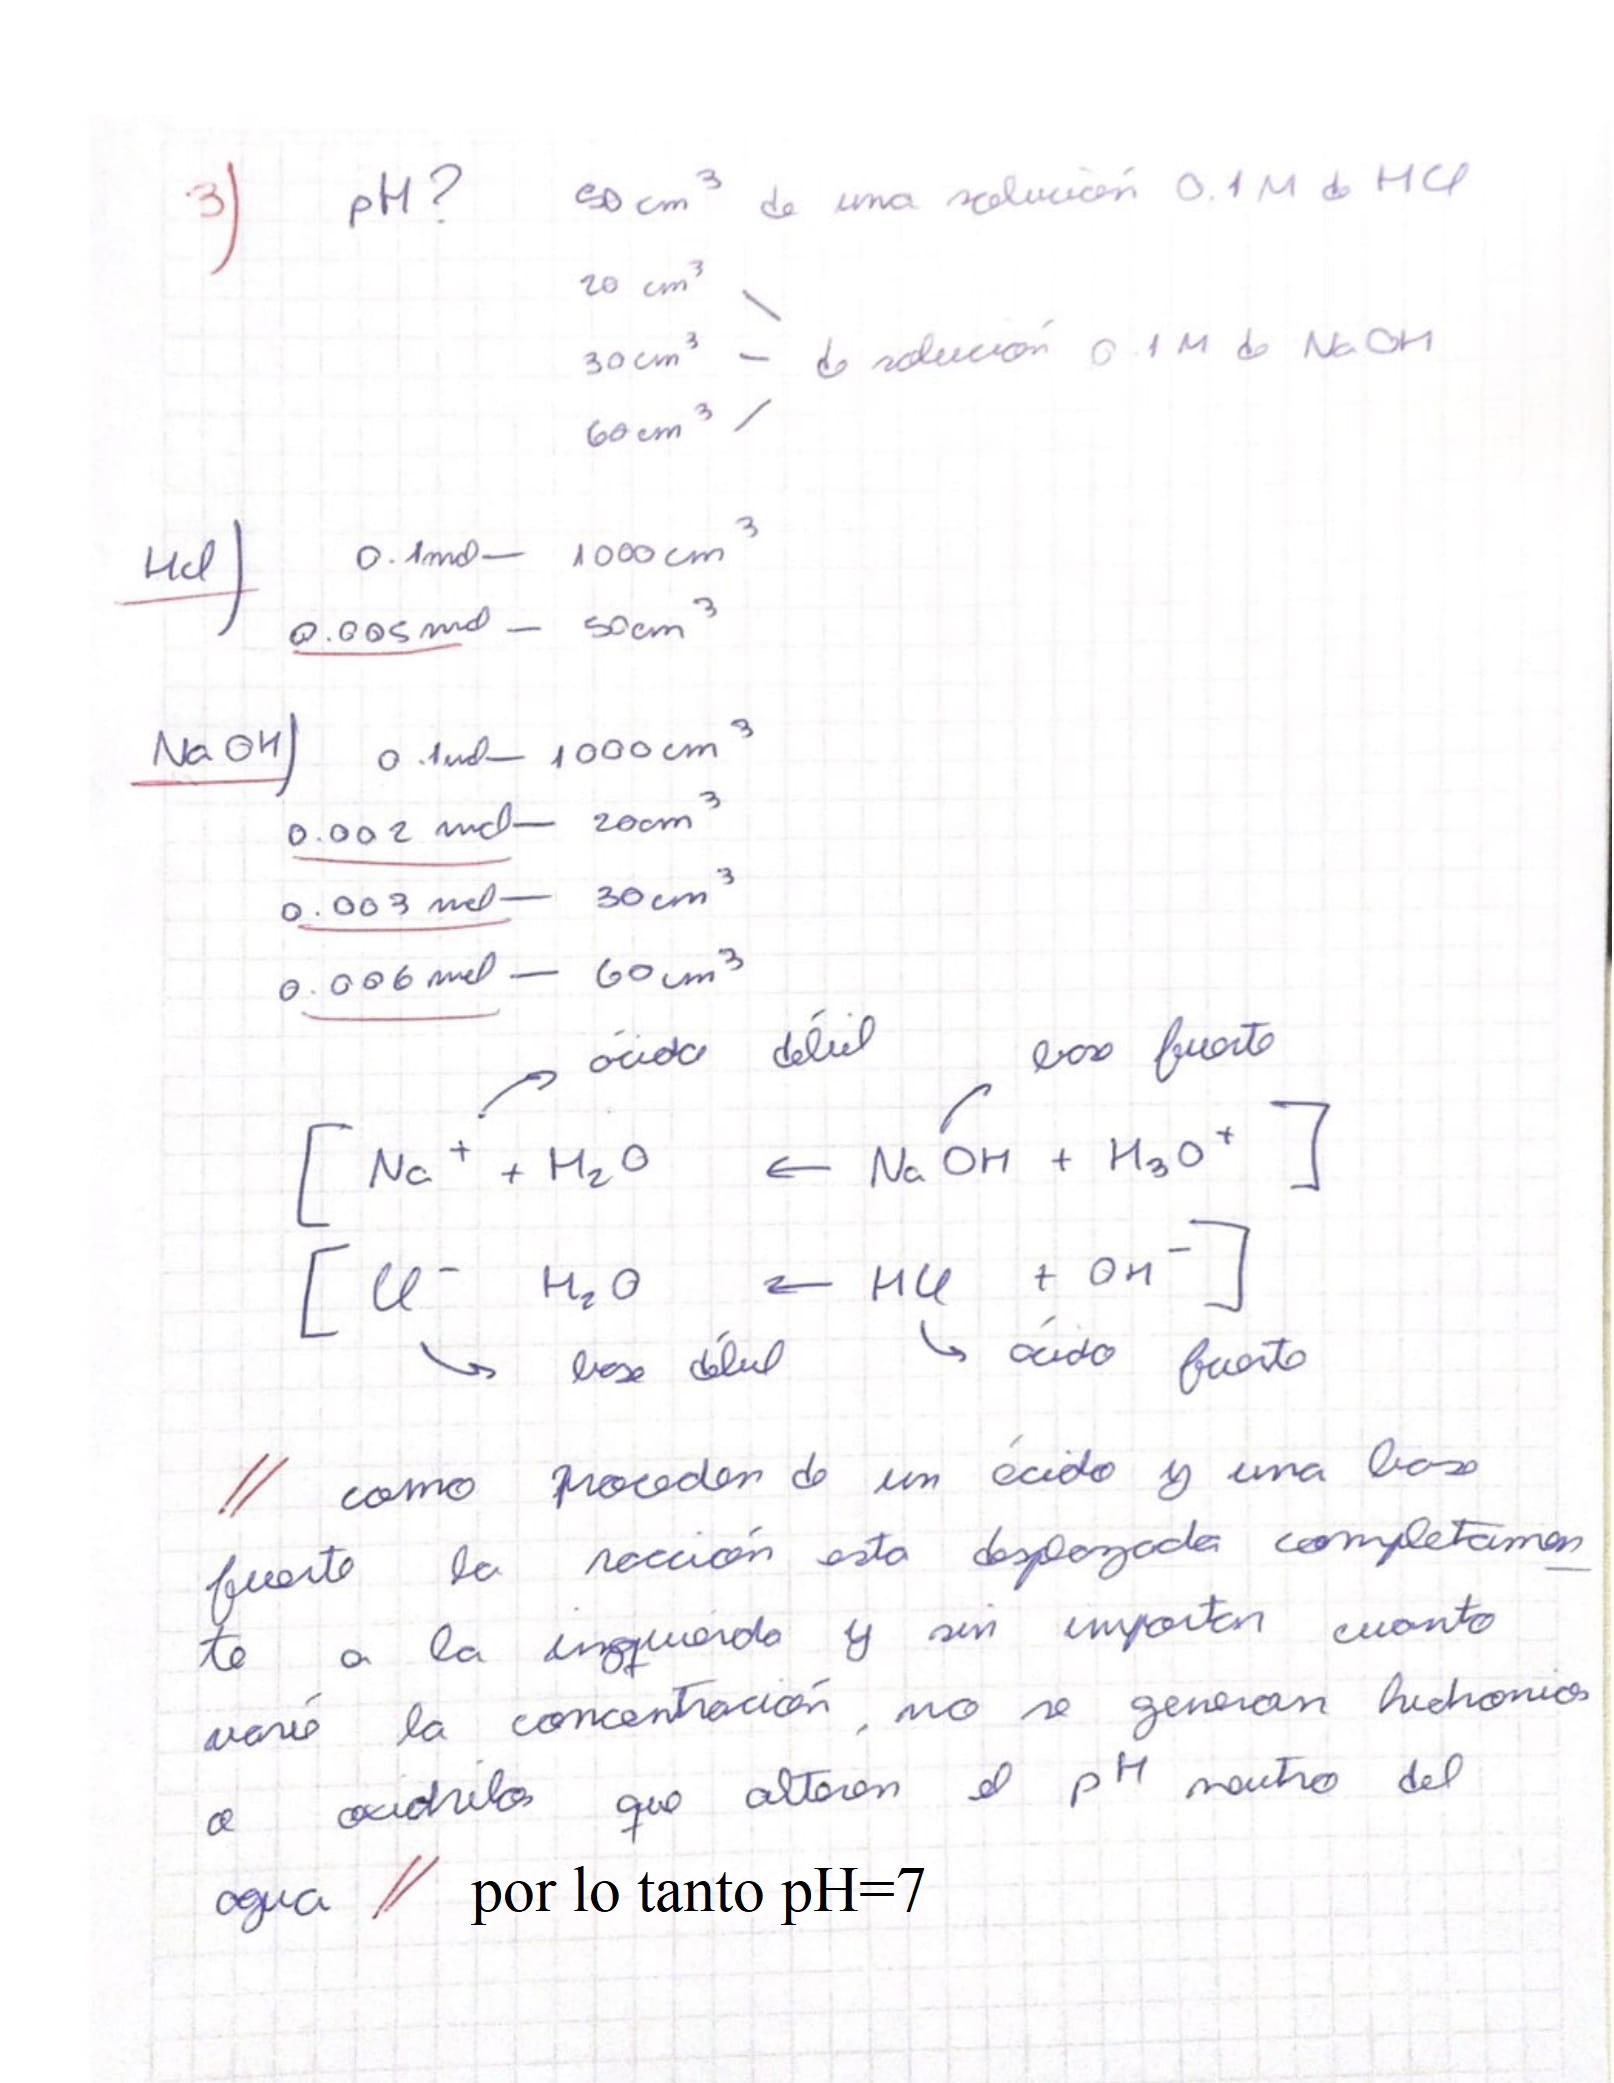 3) pH? 50 cm³ de una solución 0.1 M de HCl
20 cm³
30 cm³ — de solución 0.1 M de NaOH
60 cm³
HCl) 0.1 mol — 1000 cm³
0.005 mol — 50 cm³
NaOH) 0.1 mol — 1000 cm³
0.002 mol — 20 cm³
0.003 mol — 30 cm³
0.006 mol — 60 cm³
ácido débil base fuerte
[ Na⁺ + H₂O ← NaOH + H₃O⁺ ]
[ Cl⁻ H₂O ← HCl + OH⁻ ]
base débil ácido fuerte
// como proceden de un ácido y una base
fuerte la reacción esta desplazada completamen
te a la izquierda y sin importar cuanto
varíe la concentración, no se generan hidronios
o oxidrilos que alteren el pH neutro del
agua // por lo tanto pH=7